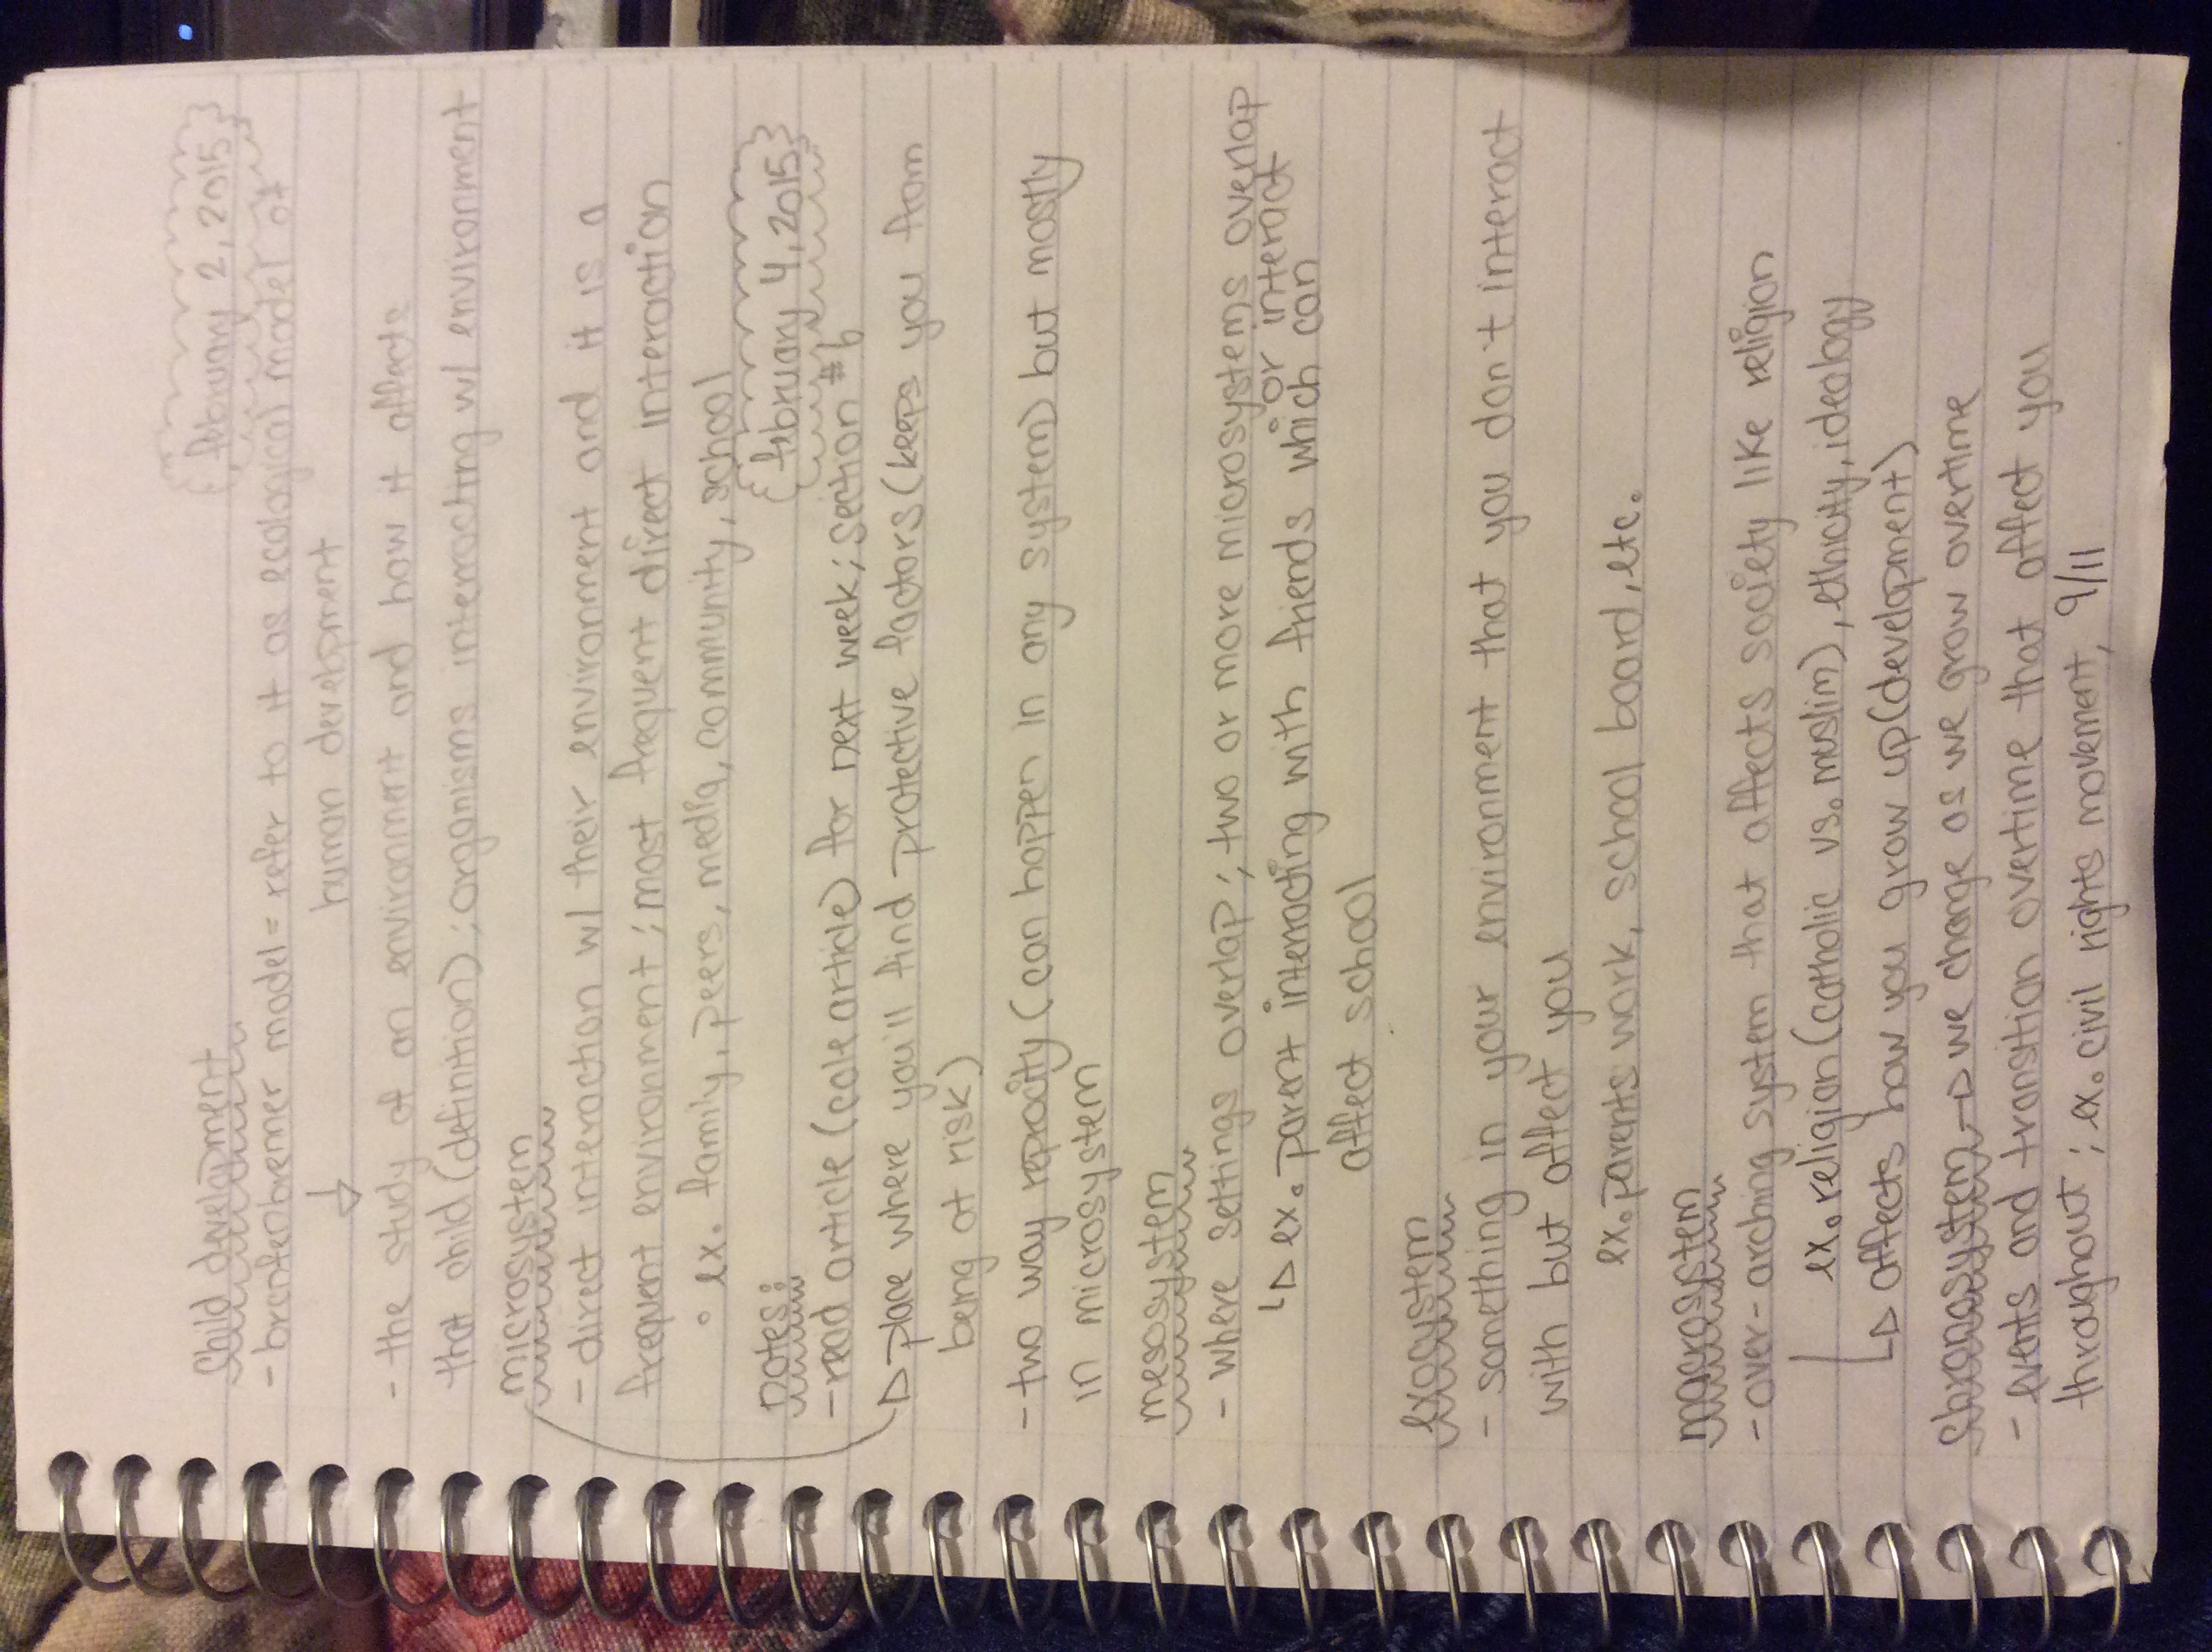 february 2, 2015
Child development
- brofenbenner model = refer to it as ecological model of
human development
- the study of an environment and how it affects
that child (definition); organisms interacting w/ environment
microsystem
- direct interaction w/ their environment and it is a
frequent environment; most frequent direct interaction
• ex. family, peers, media, community, school
february 4, 2015
notes:
- read article (cole article) for next week; section #6
place where you'll find protective factors (keeps you from
being at risk)
- two way reprocity (can happen in any system) but mostly
in microsystem
mesosystem
- where settings overlap; two or more microsystems overlap
or interact
↳ ex. parent interacting with friends which can
affect school
Exosystem
- something in your environment that you don't interact
with but affect you
ex. parents work, school board, etc.
macrosystem
- over-arching system that affects society like religion
ex. religion (catholic vs. muslim), ethicity, ideology
↳ affects how you grow up (development)
Chronosystem → we change as we grow overtime
- events and transition overtime that affect you
throughout; ex. civil rights movement, 9/11